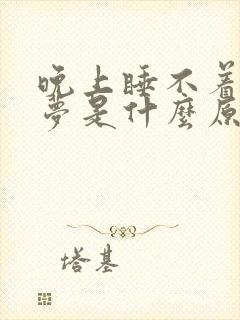 晚上睡不着
梦是什麼原
塔基